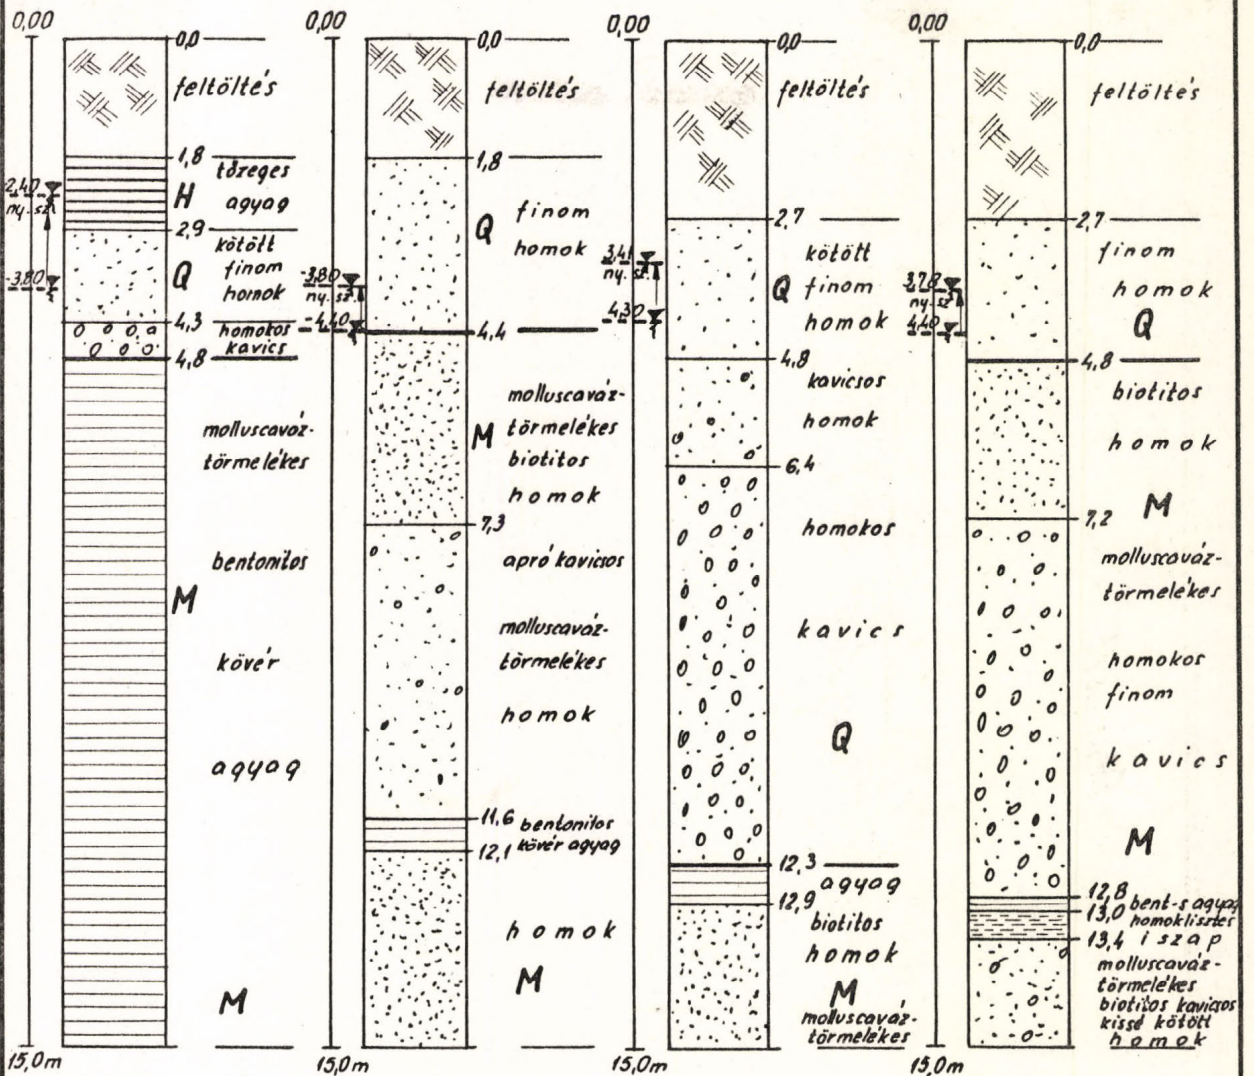 0,00
0,0
feltöltés
1,8
tőzeges
H
agyag
2,40
ny. sz.
2,9
kötött
Q
finom
homok
-3,80
4,3
homokos
kavics
4,8
molluscaváz-
törmelékes
bentonitos
M
kövér
agyag
M
15,0m
0,00
0,0
feltöltés
1,8
Q
finom
homok
-3,80
ny. sz.
-4,40
4,4
molluscaváz-
M
törmelékes
biotitos
homok
7,3
apró kavicsos
molluscaváz-
törmelékes
homok
11,6
bentonitos
kövér agyag
12,1
homok
M
15,0m
0,00
0,0
feltöltés
2,7
kötött
3,41
ny. sz.
Q
finom
4,30
homok
4,8
kavicsos
homok
6,4
homokos
kavics
Q
12,3
agyag
12,9
biotitos
homok
M
molluscaváz-
törmelékes
15,0m
0,00
0,0
feltöltés
2,7
finom
3,78
ny. sz.
homok
4,40
Q
4,8
biotitos
homok
M
7,2
molluscaváz-
törmelékes
homokos
finom
kavics
M
12,8
bent-s agyag
13,0
homoklisztes
13,4
iszap
molluscaváz-
törmelékes
biotitos kavicsos
kissé kötött
homok
15,0m